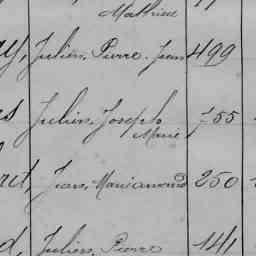 Mathieu
Julien, Pierre, Jean 499
Julien, Joseph 755
Marie
Jean, Marie 250
Julien, Pierre 141